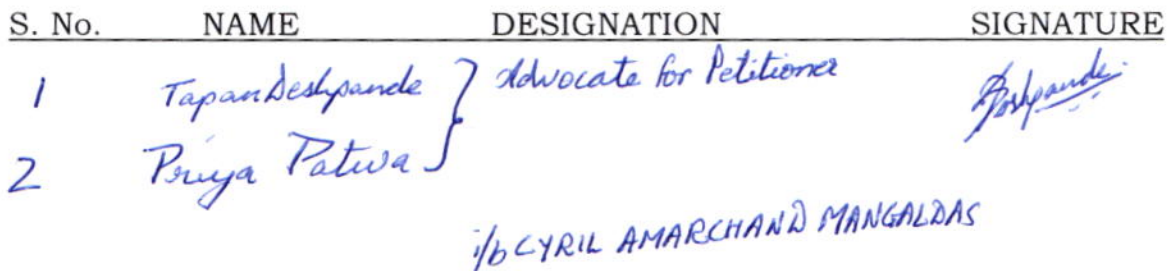 S. No. NAME DESIGNATION SIGNATURE
1 Tapan Deshpande } Advocate for Petitioner Deshpande
2 Priya Patwa
i/b CYRIL AMARCHAND MANGALDAS